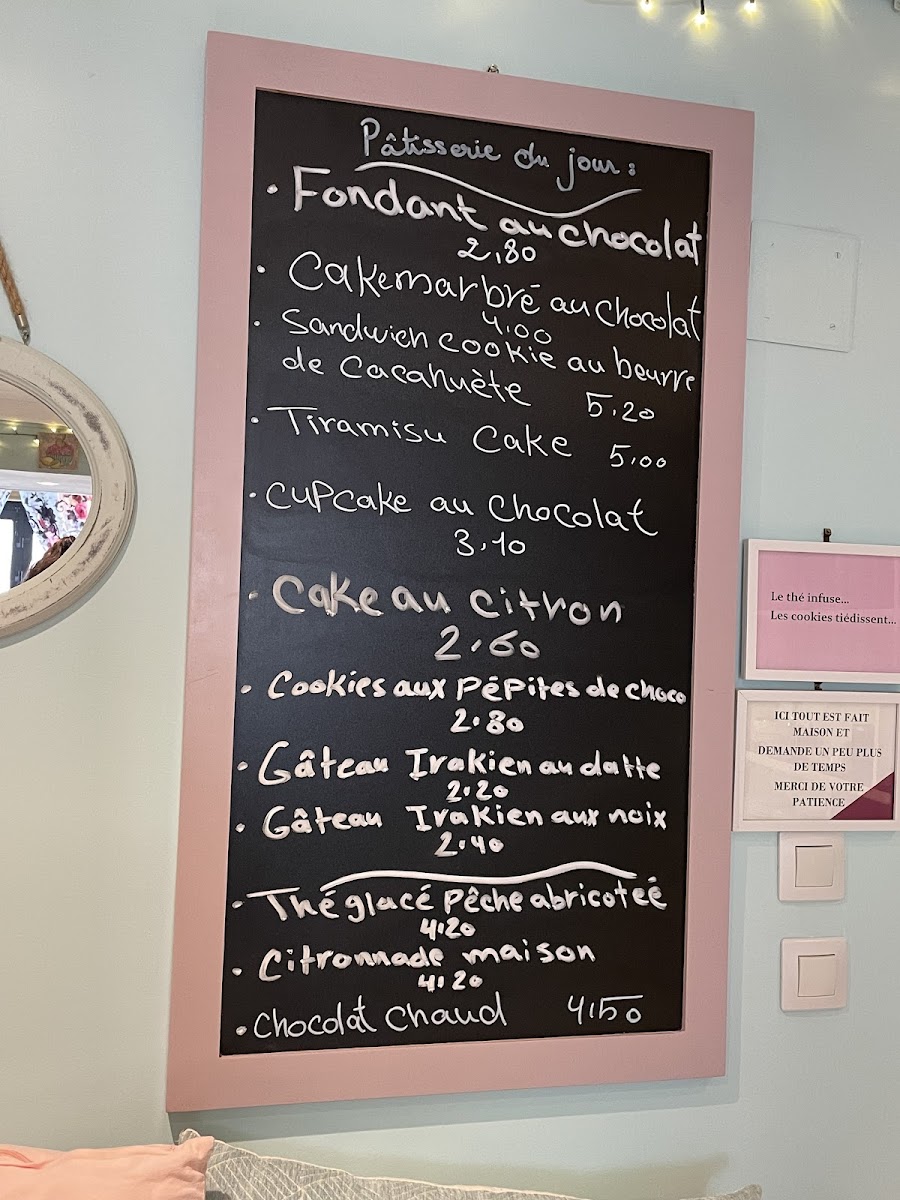 Pâtisserie du jour :
• Fondant au chocolat
2,80
• Cake marbré au chocolat
4,00
• Sandwich cookie au beurre
de Cacahuète 5,20
• Tiramisu Cake 5,00
• cupcake au chocolat
3,10
• Cake au citron
2.60
• Cookies aux pépites de choco
2.80
• Gâteau Irakien au datte
2.20
• Gâteau Irakien aux noix
2.40
• Thé glacé pêche abricoteé
4,20
• Citronnade maison
4,20
• Chocolat chaud 4,50
Le thé infuse...
Les cookies tiédissent...
ICI TOUT EST FAIT
MAISON ET
DEMANDE UN PEU PLUS
DE TEMPS
MERCI DE VOTRE
PATIENCE